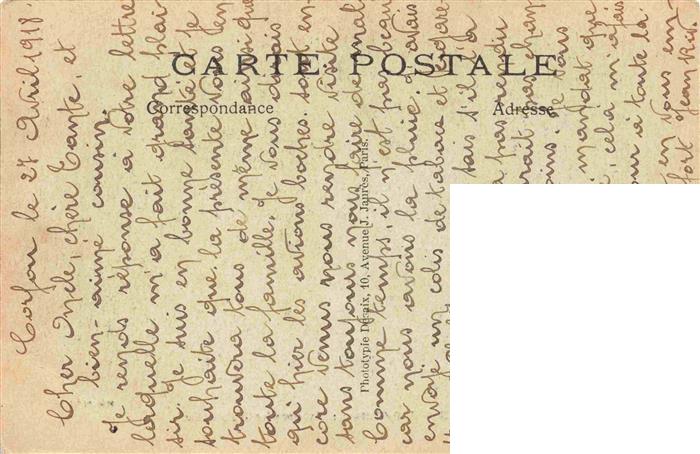 CARTE POSTALE
Correspondance
Adresse
Phototypie Decaix, 40, Avenue J. Jaurès, Paris.
Corfou le 27 Avril 1918.
Cher Oncle, chère Tante, et
bien-aimé cousin.
Je rends réponse à votre lettre
laquelle m'a fait grand plai-
sir. Je suis en bonne santé et je
souhaite que la présente vous en
trouvera tous de même ainsi que
toute la famille. Je vous dirais
qu'hier les avions boches sont en-
core venus nous rendre visite
sans toujours nous faire du mal
Comme temps, il n'est pas beau
car nous avons la pluie.
envoyé un colis de tabac et
tais s'il
pas
mandat que
cela m'a fais
à toute la
en vous em-
fort